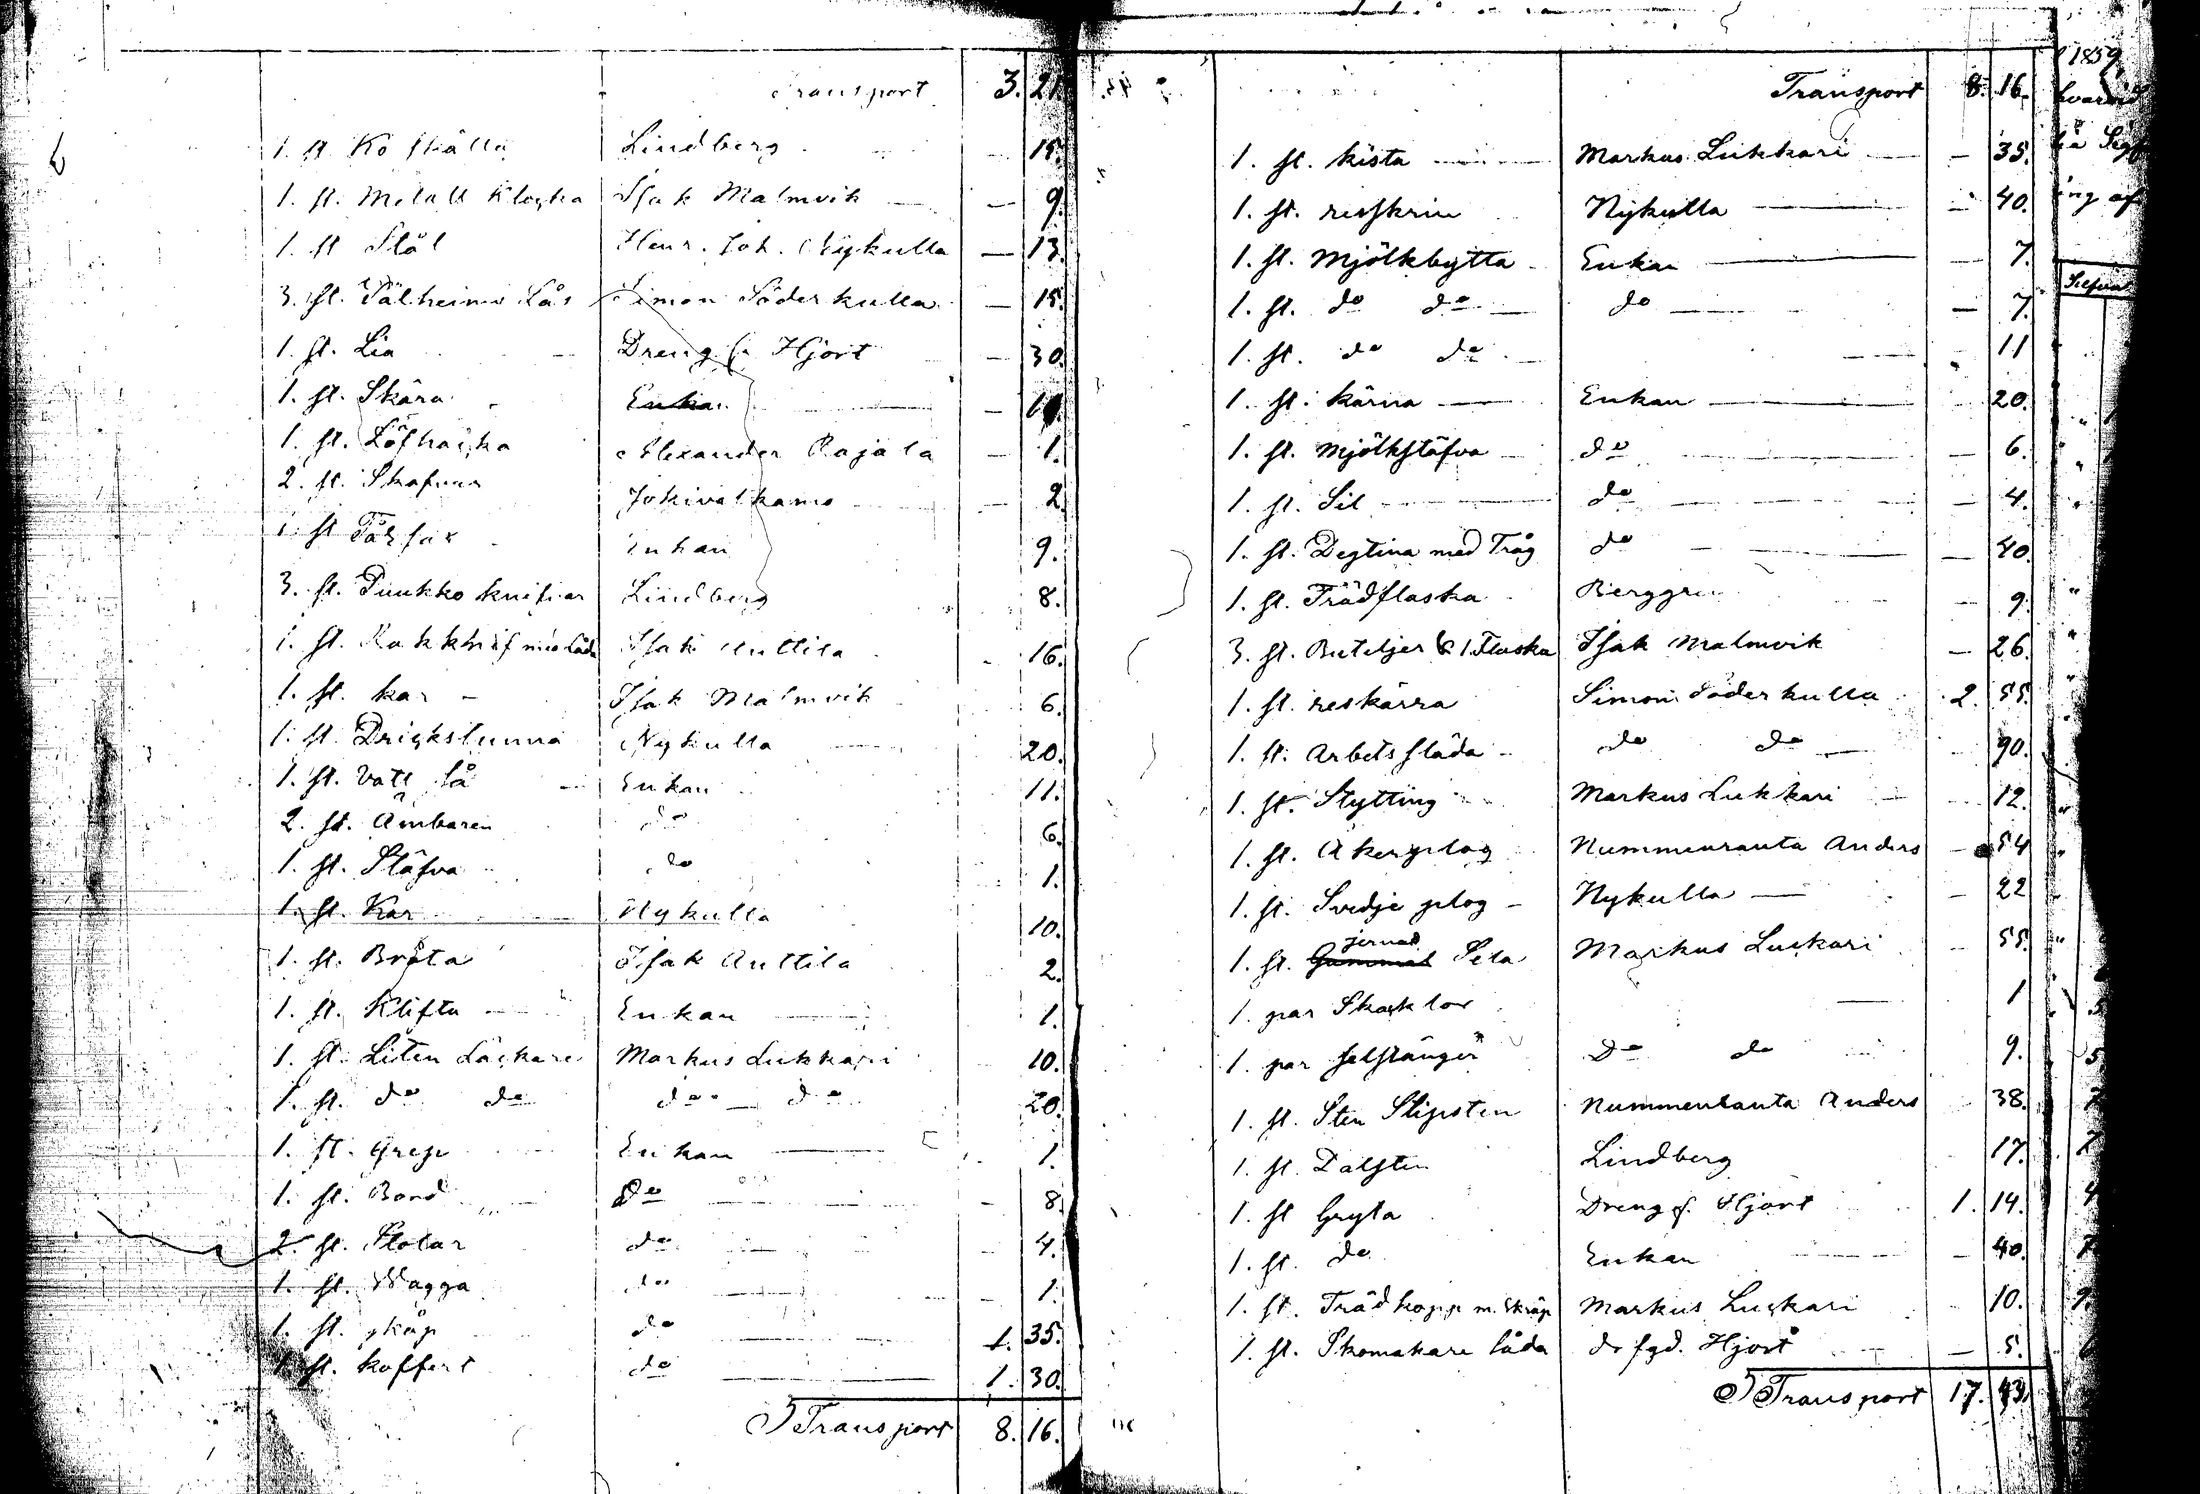 Transport 3. 21.
1. st. Ko skälla Lindberg 15.
1. st. Metall Klocka Isak Malmvik — 9.
1. st Stöl Henr. Joh. Nykulla — 13.
3. st. Lås Simon Söderkulla — 15.
1. st. Lia Dreng f. Hjort — 30.
1. st. Skära Enkan —
1. st. Löfhacka Alexander Rajala — 1.
2. st. Jokivalkamo — 2.
1. st Enkan 9.
3. st. Puukko knifvar Lindberg 8.
1. st. Rakknif med låda Isak Anttila 16.
1. st. kar – Isak Malmvik 6.
1. st. Drickstunna Nykulla 20.
1. st. Vatt så Enkan 11.
2. st. Ämbaren do 6.
1. st. Stäfva do 1.
1. st. Kar Nykulla 10.
1. st. Bråta Isak Anttila 2.
1. st. Klifta Enkan 1.
1. st. Liten Låckare Markus Lukkari 10.
1. st. do do do — do 20.
1. st. Grep Enkan 1.
1. st. Bord do 8.
2. st. Stolar do 4.
1. st. Wagga do 1.
1. st. skåp do 1. 35.
1. st. koffert do 1. 30.
Transport 8. 16.
Transport 8. 16.
1. st. kista Markus Lukkari — 35.
1. st. resskrin Nykulla — 40.
1. st. Mjölkbytta Enkan — 7.
1. st. do do do — 7.
1. st. do do — 11
1. st. kärna Enkan 20.
1. st. Mjölkstäfva do 6.
1. st. Sil do 4.
1. st. Degtina med Tråg do 40.
1. st. Trädflaska Berggren 9.
3. st. Buteljer & 1. Flaska Isak Malmvik — 26.
1. st. reskärra Simon Söderkulla 2. 55.
1. st. Arbets släda do do 90.
1. st. Stytting Markus Lukkari 12.
1. st. Åkerplog Nummenranta Anders — 54
1. st. Svedje plog – Nykulla — 22
jernad
1. st. Gammal Sela Markus Luckari 55.
1. par Skacklor 1
1. par selstänger do do 9.
1. st. Sten Slipsten Nummenranta Anders 38.
1. st. Dalsten Lindberg 17.
1. st Gryta Dreng f. Hjort 1. 14.
1. st. do Enkan 40.
1. st. Trädkopp m. skräp Markus Luckari 10.
1. st. Skomakare låda do fgd. Hjort — 5.
Transport 17. 43.
1859
ing af